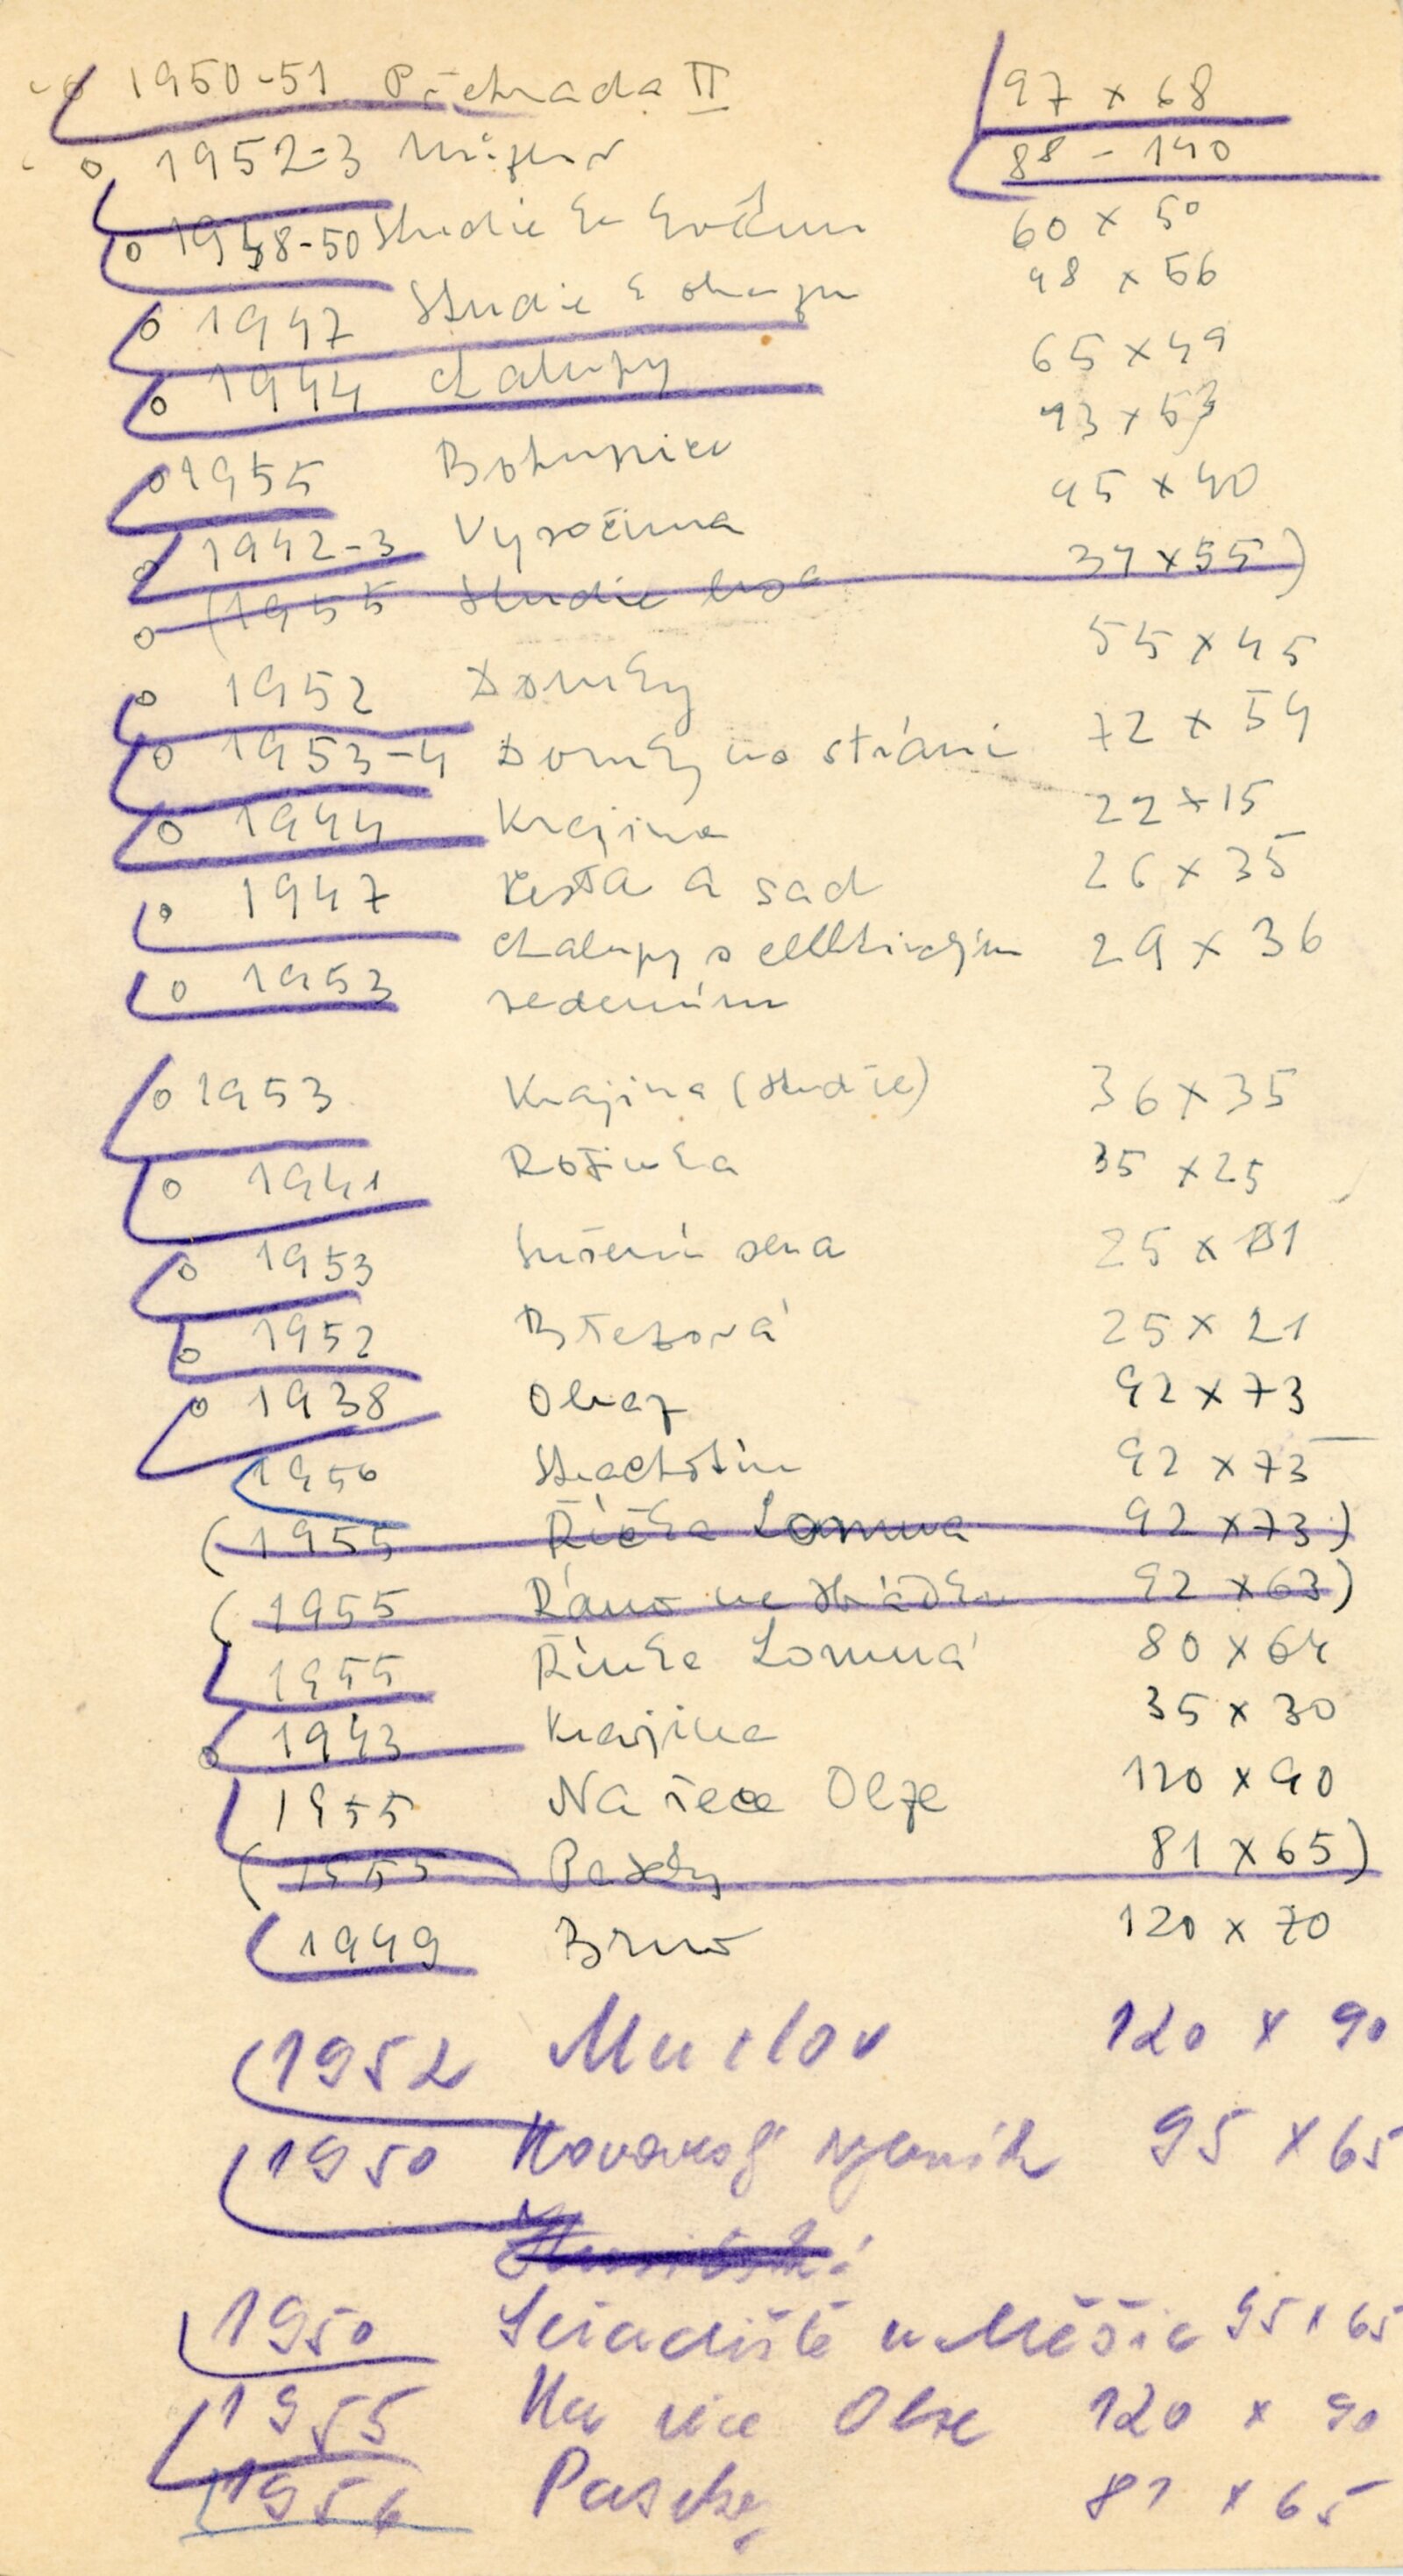 1950-51 Přehrada II 97 x 68
1952-3 88 - 140
1948-50 Studie k 60 x 50
1947 Studie k obrazu 48 x 56
1944 Chalupy 65 x 49
43 x 53
1955 Bohunice 45 x 40
1942-3 Vysočina
(1955 Studie lesa 34 x 55)
1952 Domky 55 x 45
1953-4 Domky na stráni 72 x 54
1944 Krajina 22 x 15
1947 Cesta a sad 26 x 35
1953 Chalupy s 29 x 36
1953 Krajina (studie) 36 x 35
1941 Rožinka 35 x 25
1953 Sušení sena 25 x
1952 Březová 25 x 21
1938 Obraz 92 x 73
1956 Strachotín 92 x 73
(1955 Říčka Lomná 92 x 73)
(1955 Ráno na 92 x 63)
1955 Říčka Lomná 80 x 64
1943 Krajina 35 x 30
1955 Na řece Olze 120 x 90
(1955 Paseky 81 x 65)
1949 Brno 120 x 70
1952 120 x 90
1950 Kovaský rybník 95 x 65
1950 u Měšic 95 x 65
1955 Na řece Olze 120 x 90
1956 Paseky 81 x 65